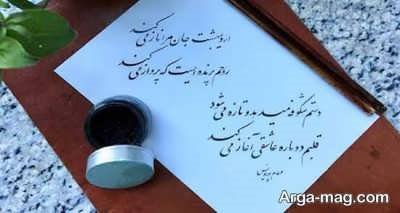 اردیبهشت جان مرا ناز می کند
روحم پرنده ایست که پرواز می کند
دستم شکوفه میدهد و تازه می شود
قلبم دوباره عاشقی آغاز می کند
Arga-mag.com